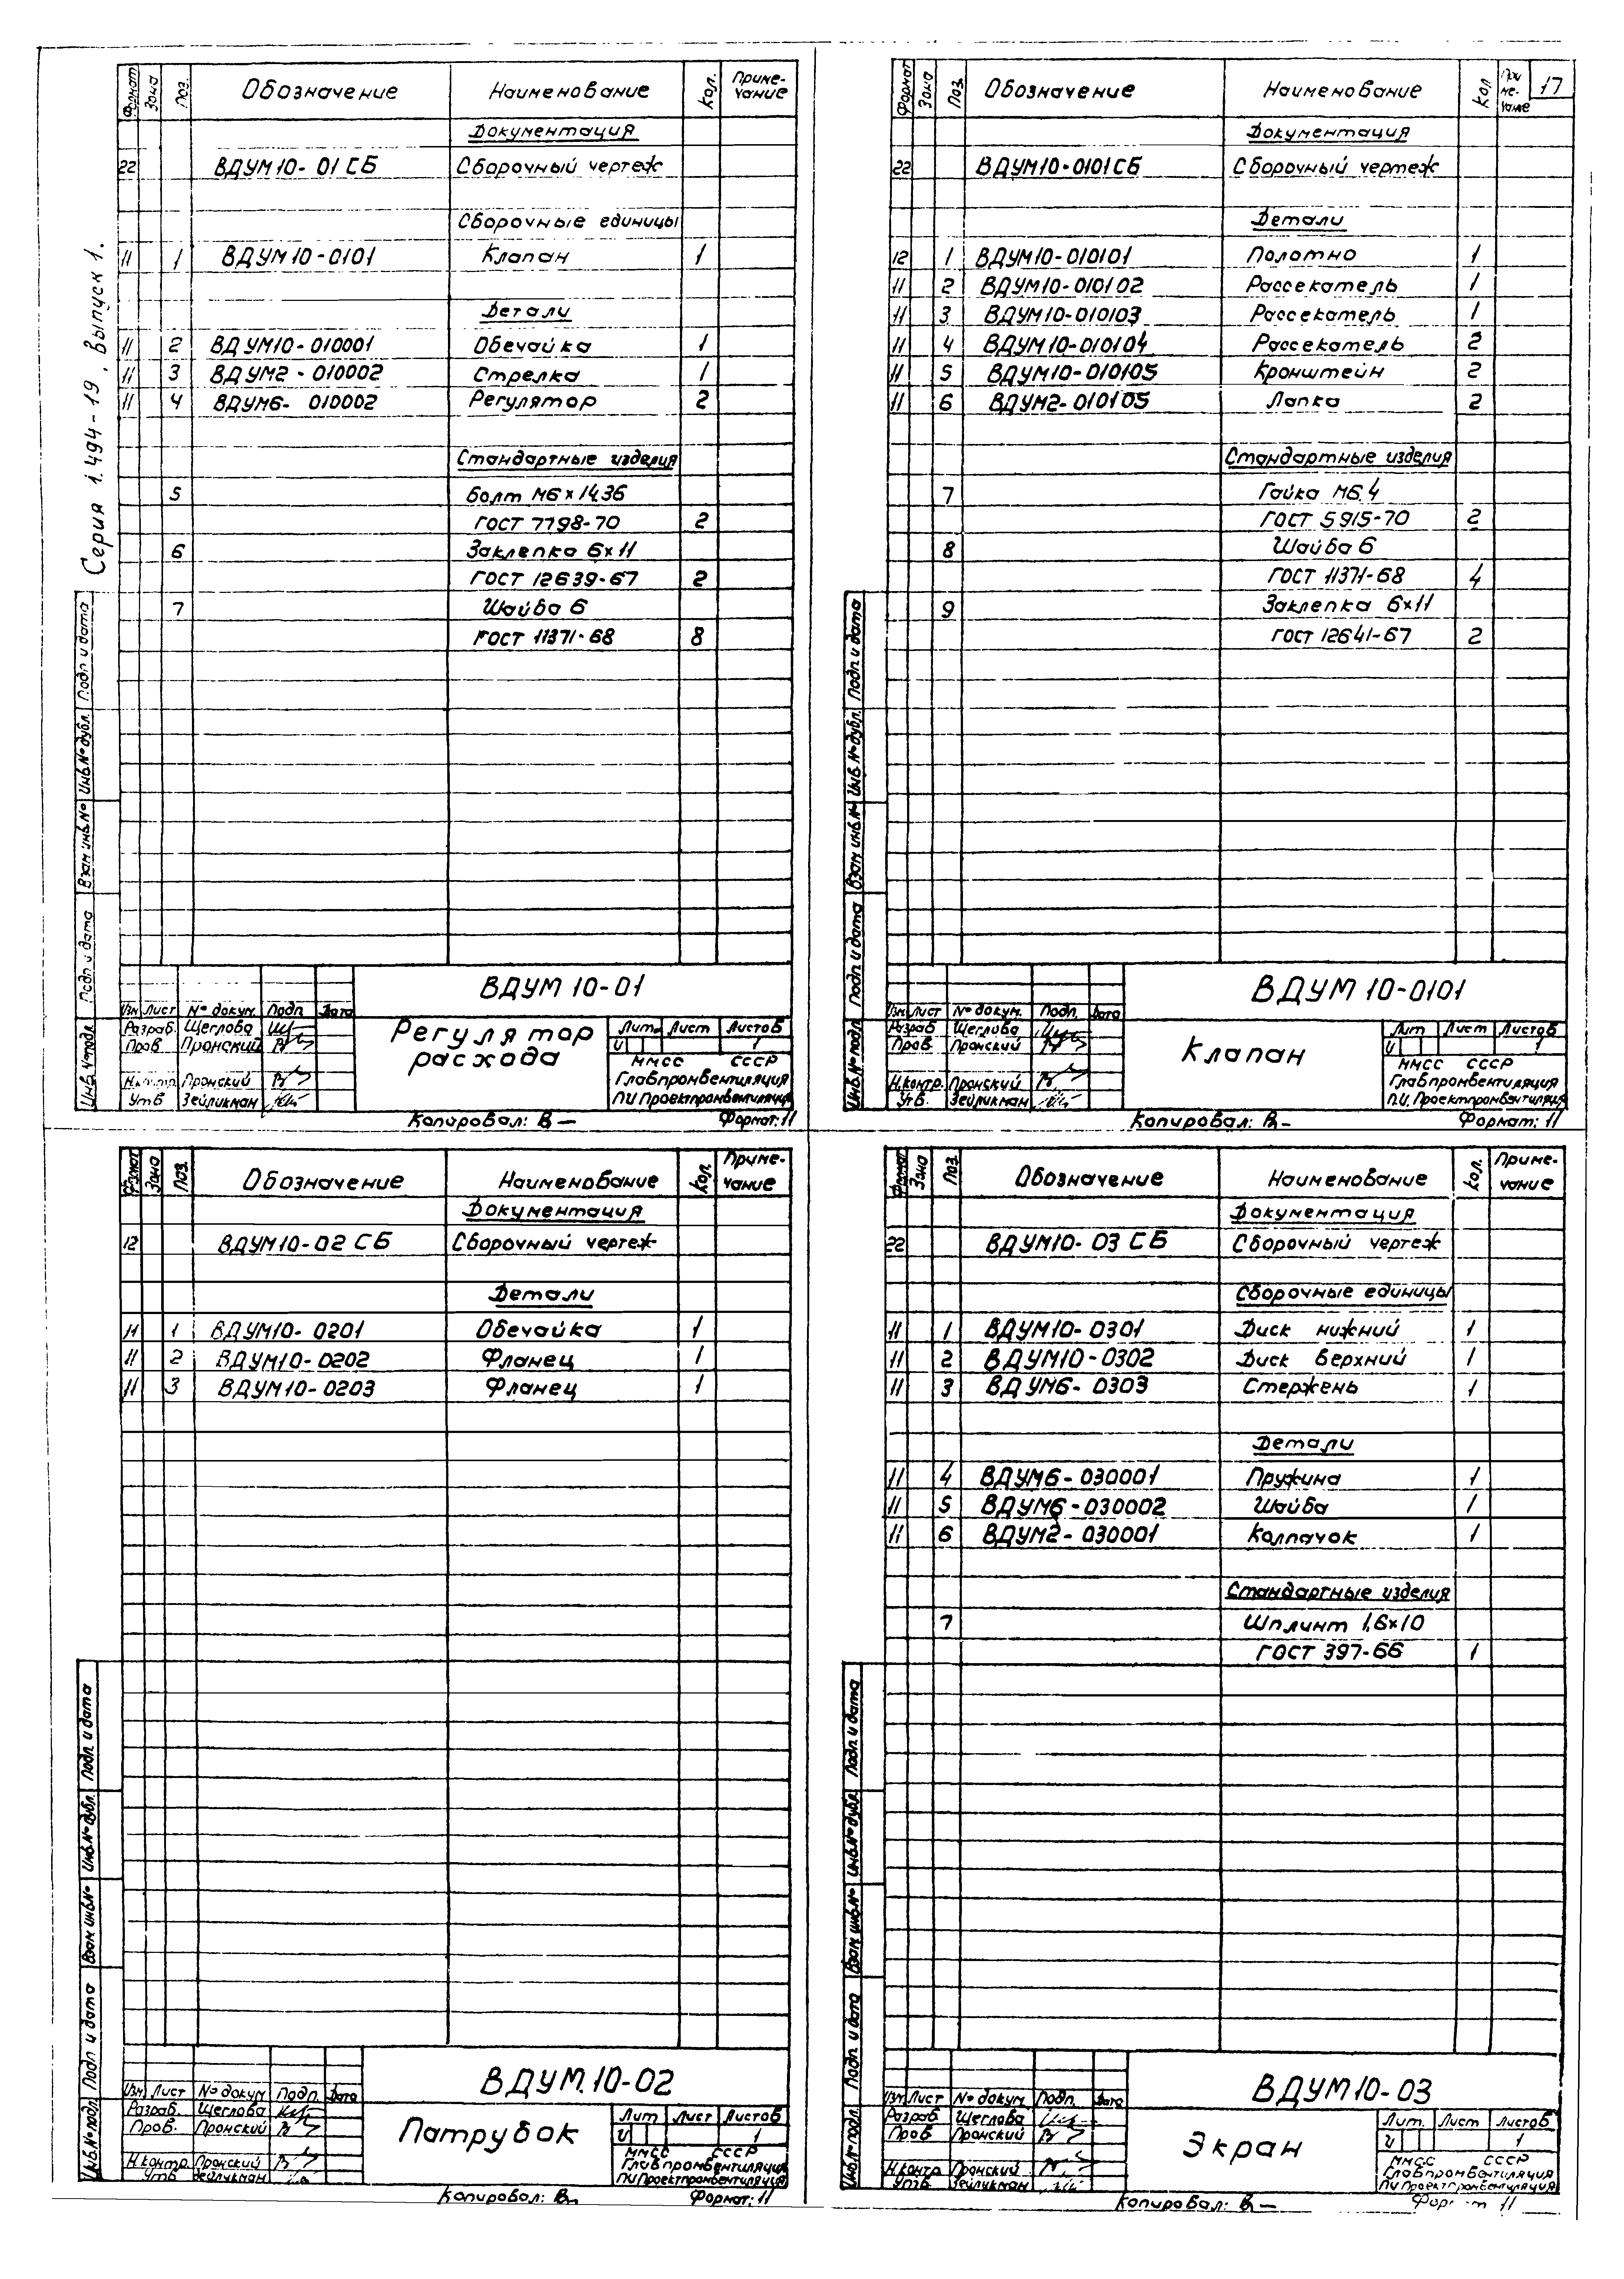 Серия 1.494-19, Выпуск 1.
Формат Зона Поз. Обозначение Наименование Кол. Примечание
Документация
22 ВДУМ10-01СБ Сборочный чертеж
Сборочные единицы
11 1 ВДУМ10-0101 Клапан 1
Детали
11 2 ВДУМ10-010001 Обечайка 1
11 3 ВДУМ2-010002 Стрелка 1
11 4 ВДУМ6-010002 Регулятор 2
Стандартные изделия
5 Болт М6×14.36
ГОСТ 7798-70 2
6 Заклепка 6×11
ГОСТ 12639-67 2
7 Шайба 6
ГОСТ 11371-68 8
Инв.№подл. Подп. и дата Взам.инв.№ Инв.№дубл. Подп. и дата
ВДУМ 10-01
Изм Лист № докум. Подп. Дата
Разраб. Щеглова
Пров Пронский
Н.контр. Пронский
Утв Зейликман
Регулятор
расхода
Лит. Лист Листов
И 1
ММСС СССР
Главпромвентиляция
П.И. Проектпромвентиляция
Копировал: В- Формат: 11
17
Формат Зона Поз. Обозначение Наименование Кол Примечание
Документация
22 ВДУМ10-0101СБ Сборочный чертеж
Детали
12 1 ВДУМ10-010101 Полотно 1
11 2 ВДУМ10-010102 Рассекатель 1
11 3 ВДУМ10-010103 Рассекатель 1
11 4 ВДУМ10-010104 Рассекатель 2
11 5 ВДУМ10-010105 Кронштейн 2
11 6 ВДУМ2-010105 Лапка 2
Стандартные изделия
7 Гайка М6.4
ГОСТ 5915-70 2
8 Шайба 6
ГОСТ 11371-68 4
9 Заклепка 6×11
ГОСТ 12641-67 2
Инв.№подл. Подп. и дата Взам.инв.№ Инв.№дубл. Подп. и дата
ВДУМ 10-0101
Изм Лист № докум. Подп. Дата
Разраб Щеглова
Пров. Пронский
Н.контр. Пронский
Утв. Зейликман
Клапан
Лит Лист Листов
И 1
ММСС СССР
Главпромвентиляция
П.И. Проектпромвентиляция
Копировал: В- Формат: 11
Формат Зона Поз. Обозначение Наименование Кол. Примечание
Документация
12 ВДУМ10-02 СБ Сборочный чертеж
Детали
11 1 ВДУМ10-0201 Обечайка 1
11 2 ВДУМ10-0202 Фланец 1
11 3 ВДУМ10-0203 Фланец 1
Инв.№подл. Подп. и дата Взам инв.№ Инв.№дубл. Подп. и дата
ВДУМ.10-02
Изм Лист № докум Подп. Дата
Разраб. Щеглова
Пров. Пронский
Н.контр. Пронский
Утв Зейликман
Патрубок
Лит Лист Листов
И 1
ММСС СССР
Главпромвентиляция
П.И Проектпромвентиляция
Копировал: В- Формат: 11
Формат Зона Поз. Обозначение Наименование Кол. Примечание
Документация
22 ВДУМ10-03 СБ Сборочный чертеж
Сборочные единицы
11 1 ВДУМ10-0301 Диск нижний 1
11 2 ВДУМ10-0302 Диск верхний 1
11 3 ВДУМ6-0303 Стержень 1
Детали
11 4 ВДУМ6-030001 Пружина 1
11 5 ВДУМ6-030002 Шайба 1
11 6 ВДУМ2-030001 Колпачок 1
Стандартные изделия
7 Шплинт 1,6×10
ГОСТ 397-66 1
Инв.№подл. Подп. и дата Взам инв.№ Инв.№дубл. Подп. и дата
ВДУМ10-03
Изм Лист № докум. Подп. Дата
Разраб. Щеглова
Пров Пронский
Н.контр Пронский
Утв. Зейликман
Экран
Лит. Лист Листов
И 1
ММСС СССР
Главпромвентиляция
П.И Проектпромвентиляция
Копировал: В- Формат 11